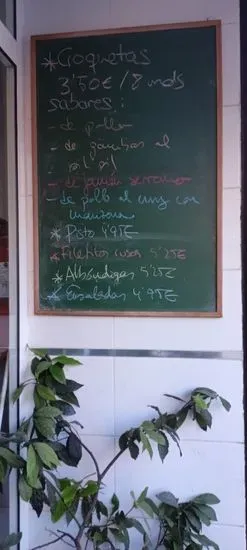 *Croquetas
3'50€/8 unds
sabores:
- de pollo
- de gambas al
pil pil
- de jamón serrano
- de pollo al curry con
manzana
* Pisto 4'95€
* Filetitos rusos 5'25€
* Albóndigas 5'25€
* Ensaladas 4'95€